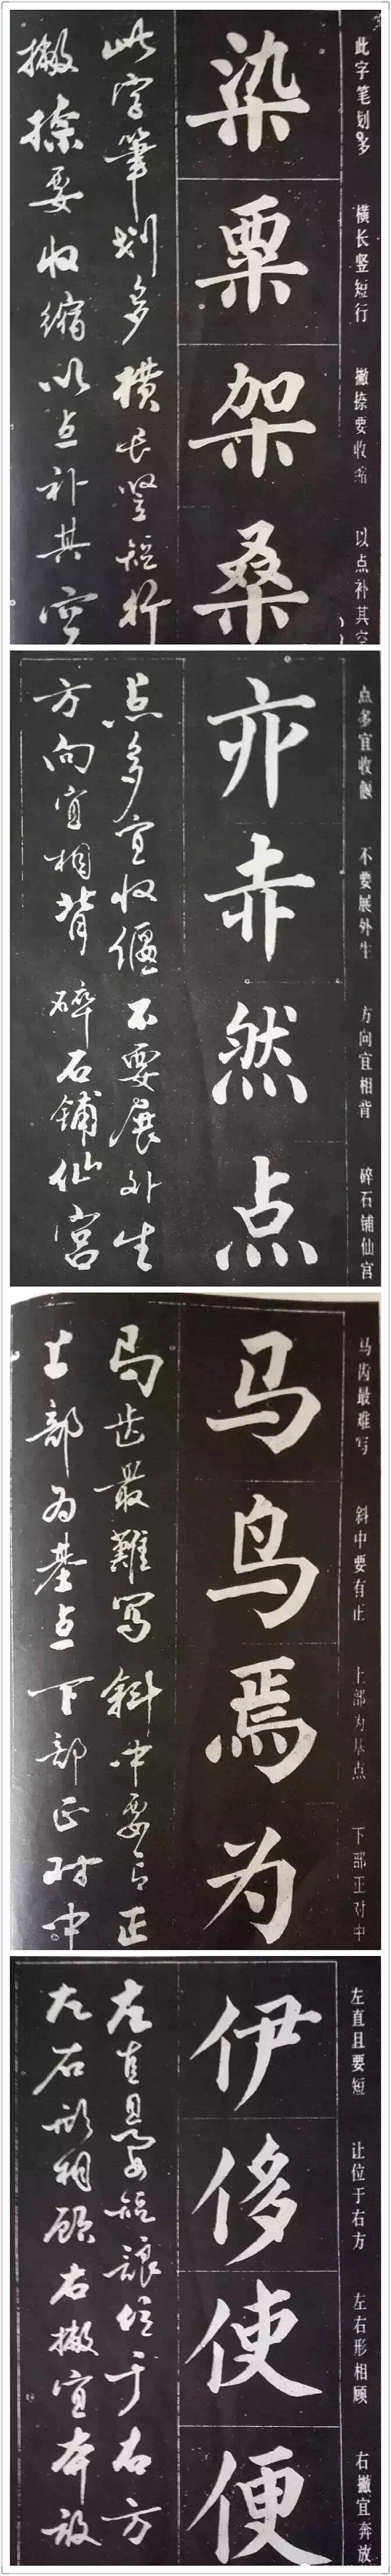 此字笔划多 横长竖短行 撇捺要收缩 以点补其空
染粟架桑
此字筆划多横长竖短行
撇捺要收缩以点补其空
点多宜收偃 不要展外生 方向宜相背 碎石铺仙宫
亦赤然点
点多宜收偃不要展外生
方向宜相背碎石铺仙宫
马齿最难写 斜中要有正 上部为基点 下部正对中
马鸟焉为
马齿最難写斜中要有正
上部为基点下部正对中
左直且要短 让位于右方 左右形相顾 右撇宜奔放
伊侈使便
左直且要短讓位于右方
左右形相顾右撇宜奔放